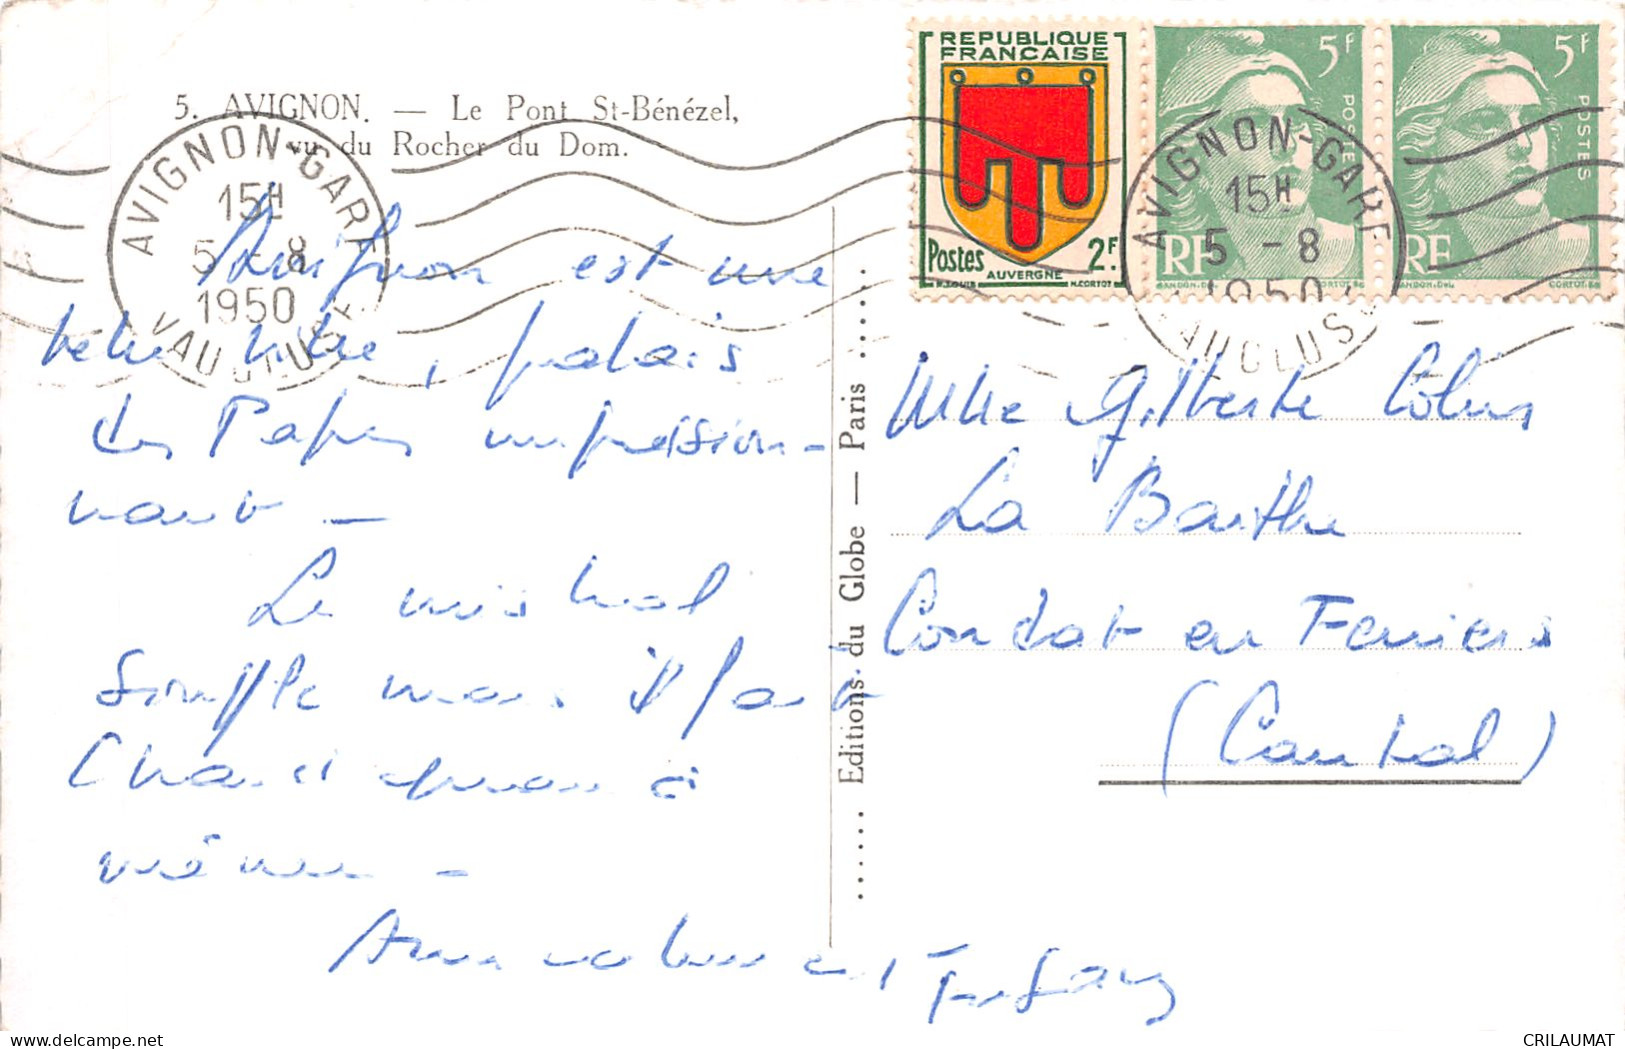 5. AVIGNON. — Le Pont St-Bénézel,
vu du Rocher du Dom.
AVIGNON-GARE
15H
5 -8
1950
VAUCLUSE
REPUBLIQUE
FRANÇAISE
Postes 2F.
AUVERGNE
R.LOUIS H.CORTOT
5F
POSTES
RF
GANDON.DEL CORTOT.SC
5F
POSTES
RF
GANDON.DEL CORTOT.SC
AVIGNON-GARE
15H
5 -8
1950
VAUCLUSE
Avignon est une
belle ville, palais
des Papes impression-
nant —
Le mistral
souffle mais il fait
chaud quand
même —
Amicalement
Mlle Gilberte Colin
La Barthe
Condat en Feniers
(Cantal)
...... Editions du Globe — Paris ......
CRILAUMAT